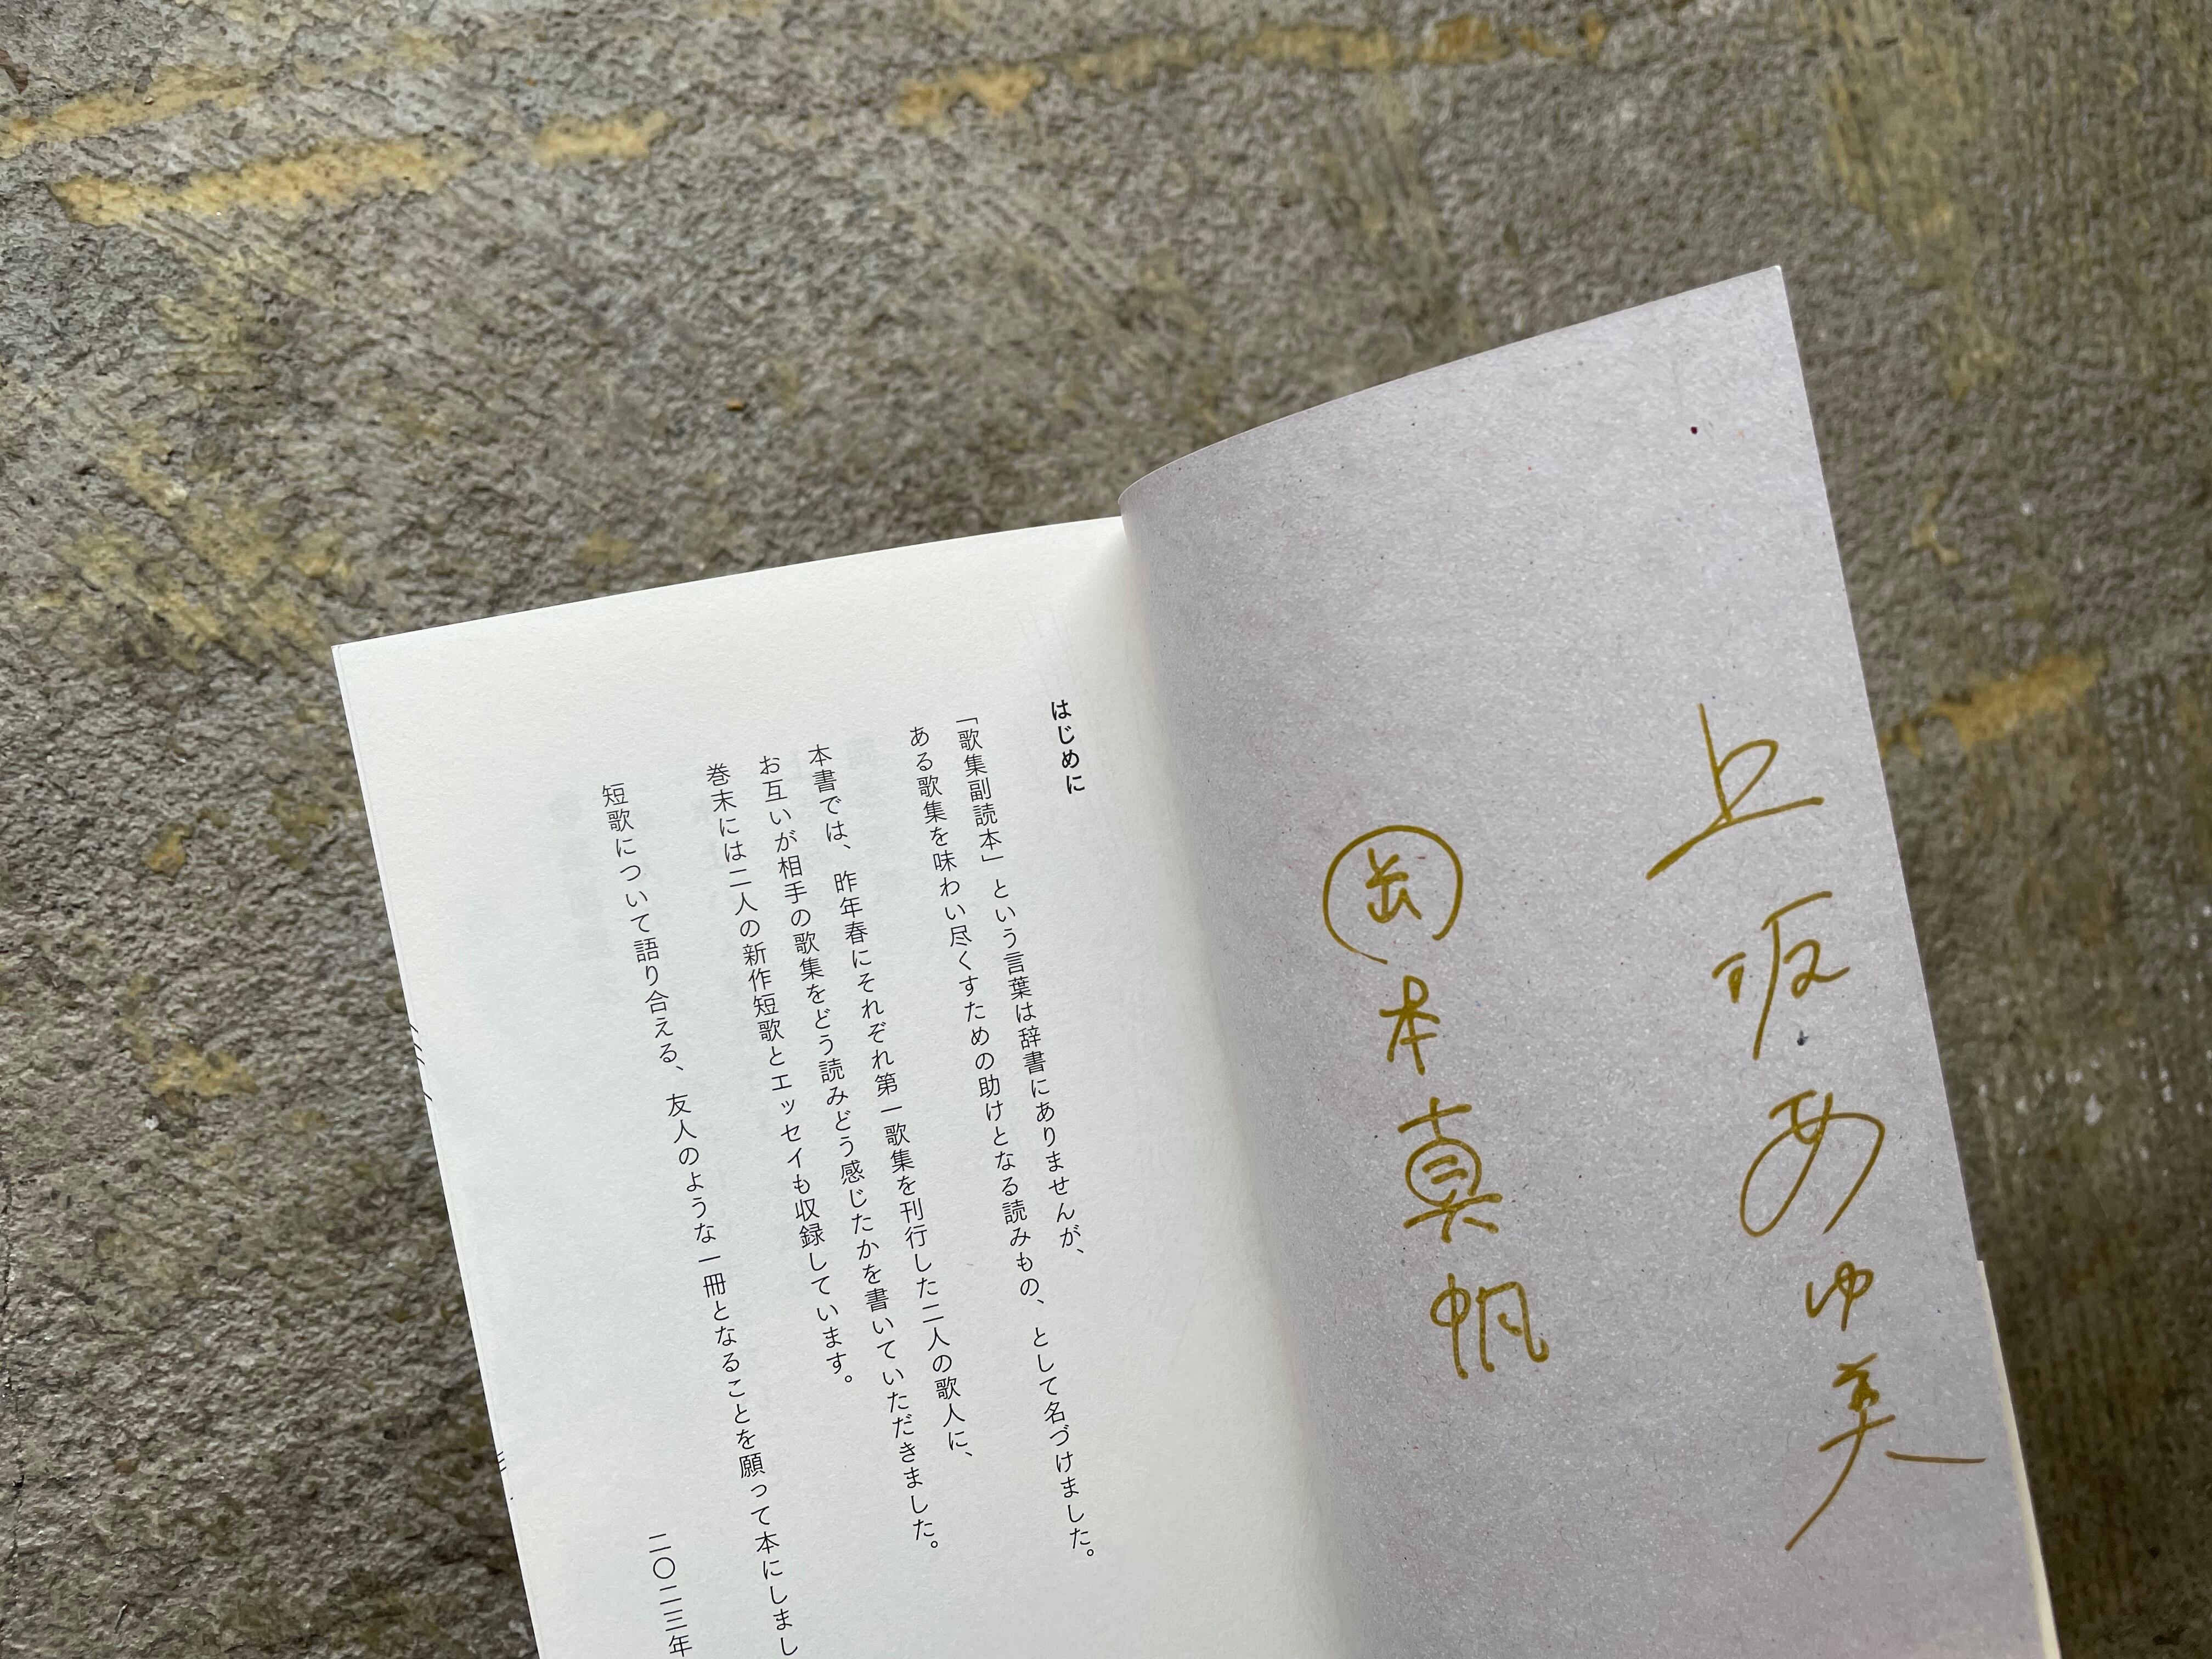 上坂あゆ美
岡本真帆
はじめに
「歌集副読本」という言葉は辞書にありませんが、
ある歌集を味わい尽くすための助けとなる読みもの、として名づけました。
本書では、昨年春にそれぞれ第一歌集を刊行した二人の歌人に、
お互いが相手の歌集をどう読みどう感じたかを書いていただきました。
巻末には二人の新作短歌とエッセイも収録しています。
短歌について語り合える、友人のような一冊となることを願って本にしまし
二〇二三年